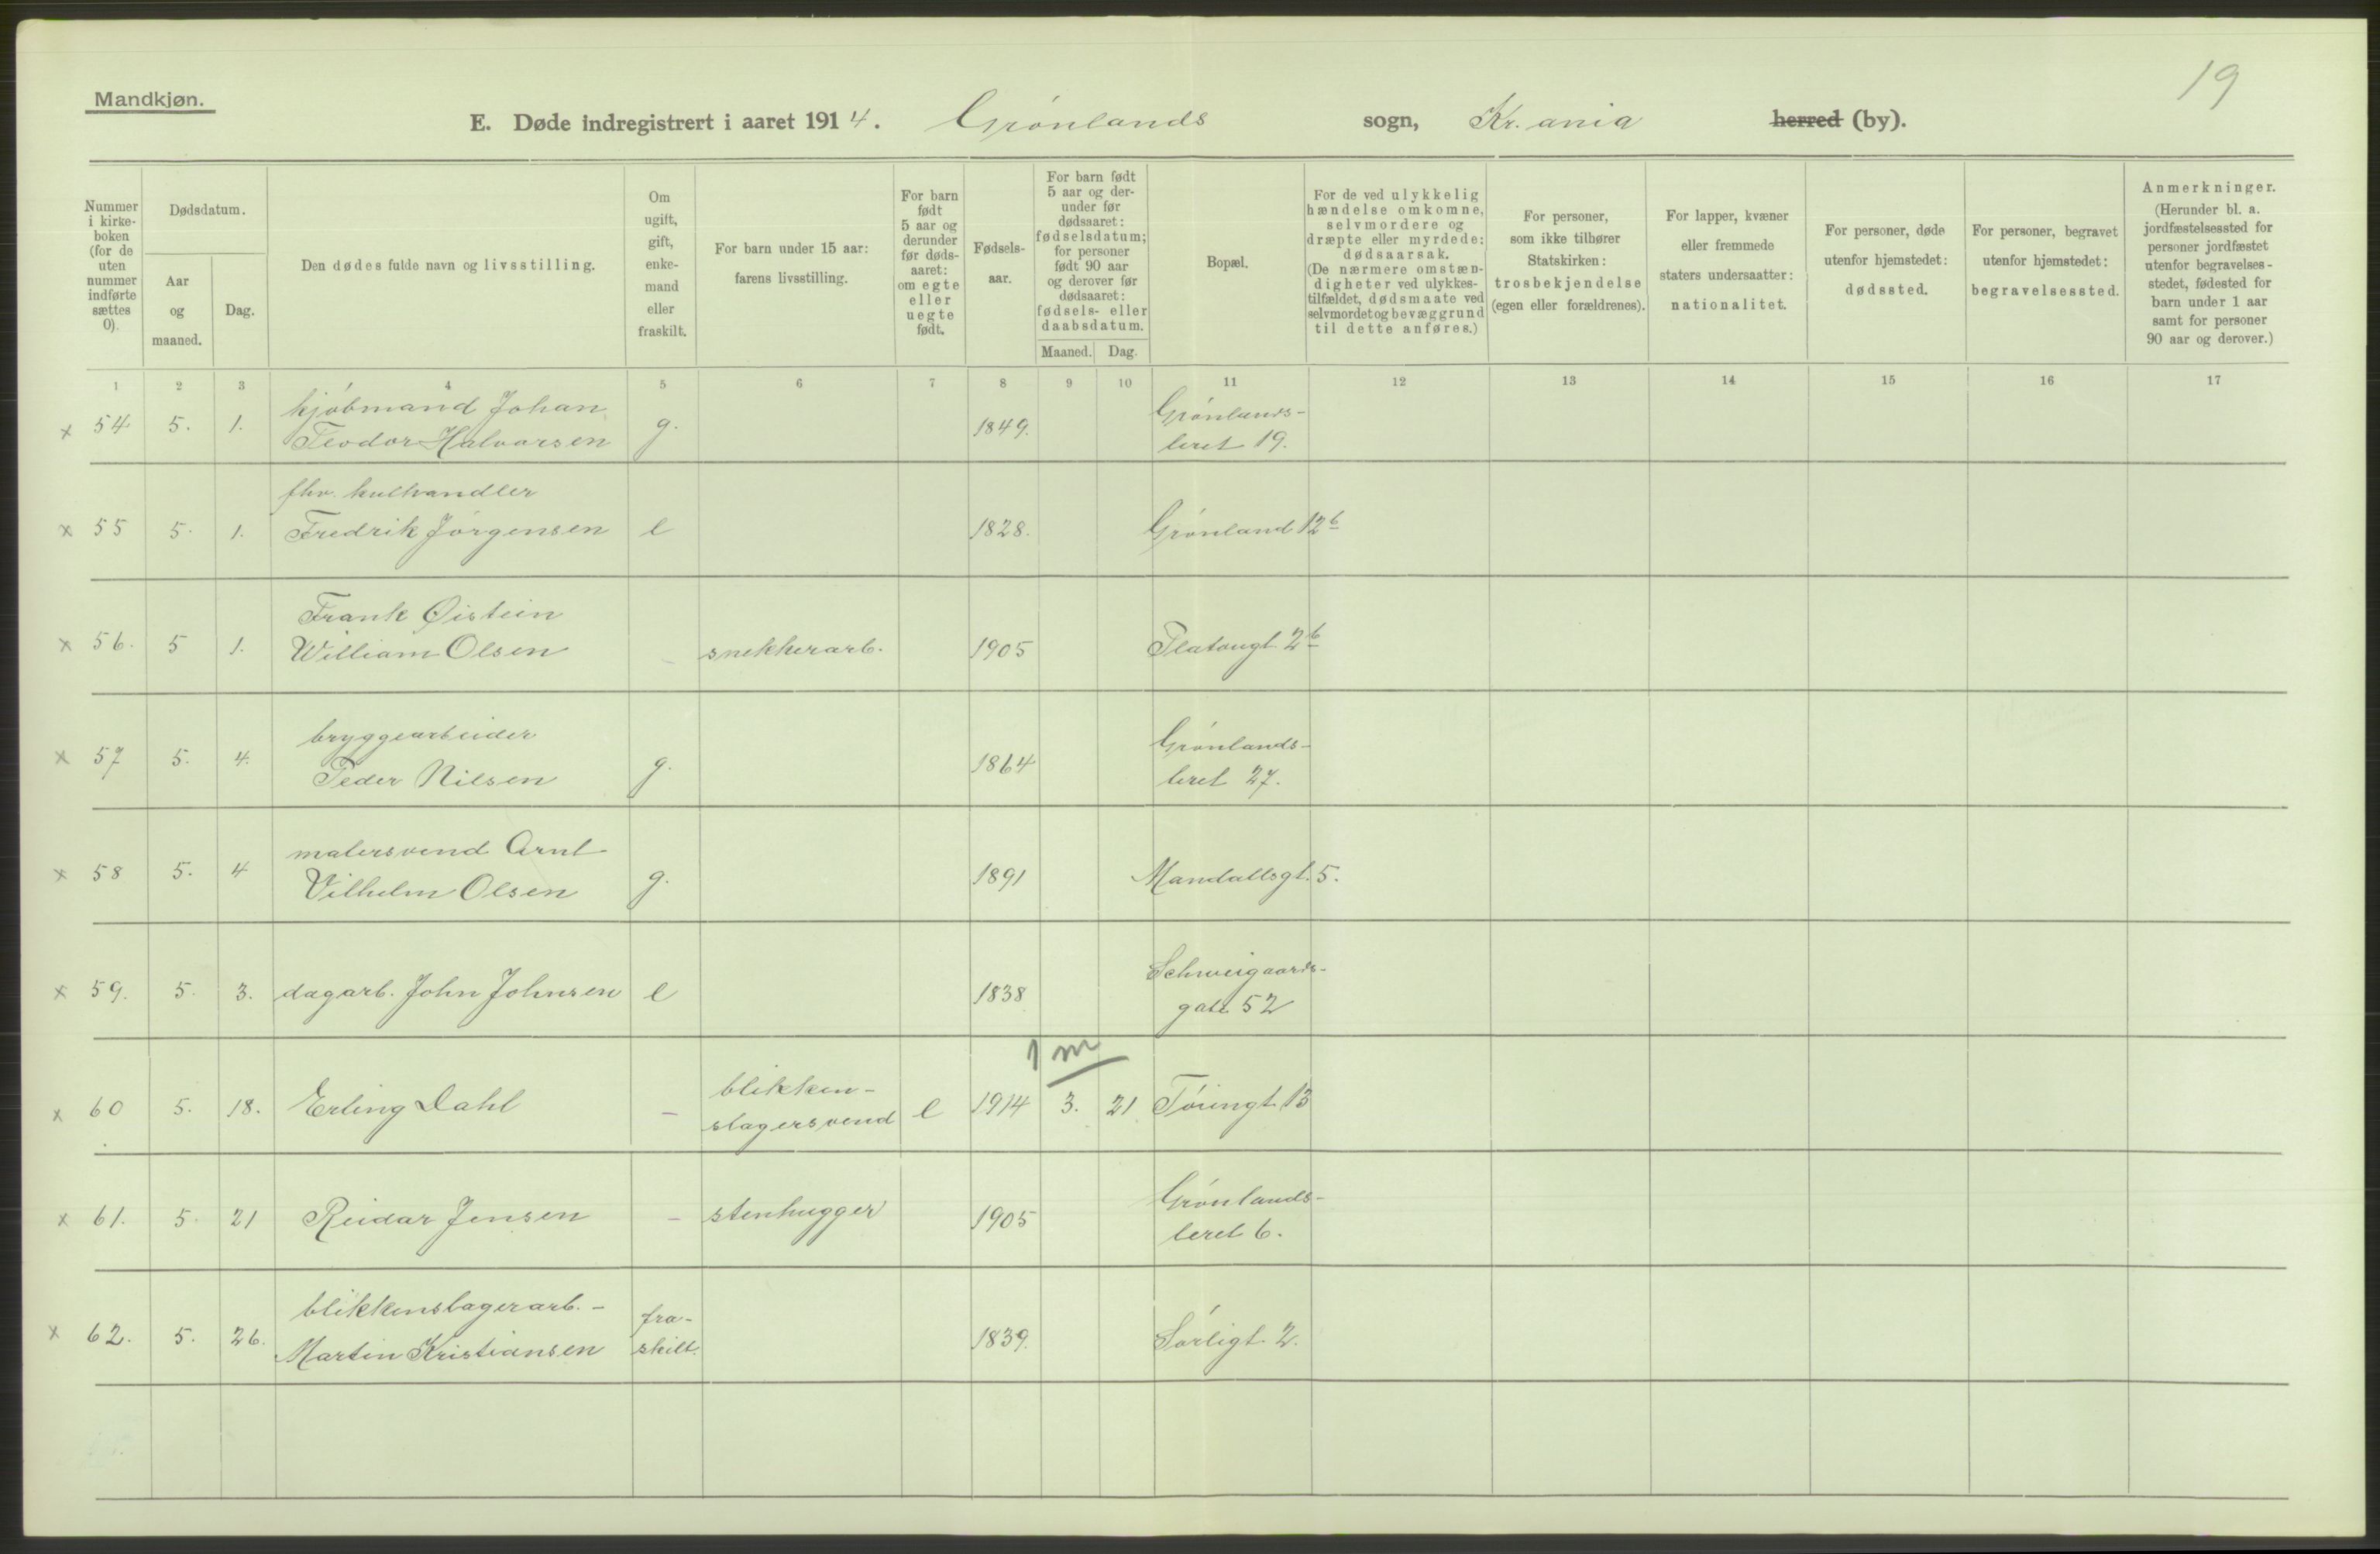 19
Mandkjøn.
E. Døde indregistrert i aaret 1914. Grønlands sogn, Kr.ania herred (by).
Nummer i kirke- boken (for de uten nummer indførte sættes 0).
Dødsdatum.
Aar og maaned.
Dag.
Den dødes fulde navn og livsstilling.
Om ugift, gift, enke- mand eller fraskilt.
For barn under 15 aar: farens livsstilling.
For barn født 5 aar og derunder før døds- aaret: om egte eller uegte født.
Fødsels- aar.
For barn født 5 aar og der- under før dødsaaret: fødselsdatum; for personer født 90 aar og derover før dødsaaret: fødsels- eller daabsdatum.
Maaned. Dag.
Bopæl.
For de ved ulykkelig hændelse omkomne, selvmordere og dræpte eller myrdede: dødsaarsak. (De nærmere omstæn- digheter ved ulykkes- tilfældet, dødsmaate ved selvmordet og bevæggrund til dette anføres.)
For personer, som ikke tilhører Statskirken: trosbekjendelse (egen eller forældrenes).
For lapper, kvæner eller fremmede staters undersaatter: nationalitet.
For personer, døde utenfor hjemstedet: dødssted.
For personer, begravet utenfor hjemstedet: begravelsessted.
Anmerkninger. (Herunder bl. a. jordfæstelsessted for personer jordfæstet utenfor begravelses- stedet, fødested for barn under 1 aar samt for personer 90 aar og derover.)
1 2 3 4 5 6 7 8 9 10 11 12 13 14 15 16 17
kjøbmand Johan Grønlands-
x 54 5. 1. Teodor Halvorsen g. 1849. leret 19.
fhv. kulhandler
x 55 5. 1. Fredrik Jørgensen e 1828. Grønland 12b
Frank Øistein
x 56. 5 1. William Olsen - snekkerarb. 1905 Platougt. 2b
bryggearbeider Grønlands-
x 57 5. 4. Peder Nilsen g. 1864 leret 27.
malersvend Arnt
x 58 5. 4 Vilhelm Olsen g. 1891 Mandallsgt. 5.
Schweigaards-
x 59. 5. 3. dagarb. John Johnsen e 1838 gate 52
1 m
blikken-
x 60 5. 18. Erling Dahl - slagersvend e 1914 3. 21 Tøiengt. 13
Grønlands-
x 61. 5. 21 Reidar Jensen - stenhugger 1905 leret 6.
blikkenslagerarb. - fra-
x 62. 5. 26. Martin Kristiansen skilt. 1839. Sørligt. 2.